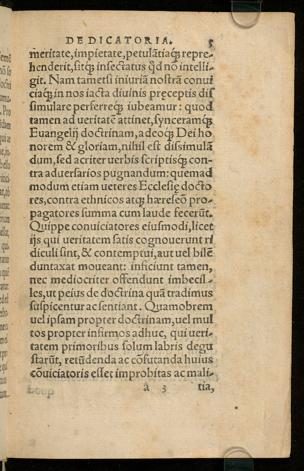 DEDICATORIA. 5
meritate, impietate, petulātiaq́; repre-
henderit, sitq́; insectatus q̇d nō intelli-
git. Nam tametsi iniuriā nostrā convi
ciaq́; in nos iacta diuinis pręceptis dis
simulare perferreq́; iubeamur: quod
tamen ad veritatē attinet, synceramq́;
Euangelij doctrinam, adeoq́; Dei ho
norem & gloriam, nihil est dissimulā
dum, sed acriter uerbis scriptisq́; con-
tra aduersarios pugnandum: quemad
modum etiam ueteres Ecclesię docto
res, contra ethnicos atq́; hæreseō pro-
pagatores summa cum laude fecerūt.
Quippe conuiciatores eiusmodi, licet
ijs qui veritatem satis cognouerunt ri
diculi sint, & contemptui, aut uel bilē
duntaxat moueant: inficiunt tamen,
nec mediocriter offendunt imbecil-
les, ut peius de doctrina quā tradimus
suspicentur ac sentiant. Quamobrem
uel ipsam propter doctrinam, uel mul
tos propter infirmos adhuc, qui ueri-
tatem primoribus solum labris degu
starūt, retūdenda ac cōfutanda huius
cōuiciatoris esset improbitas ac mali-
á 3 tia,